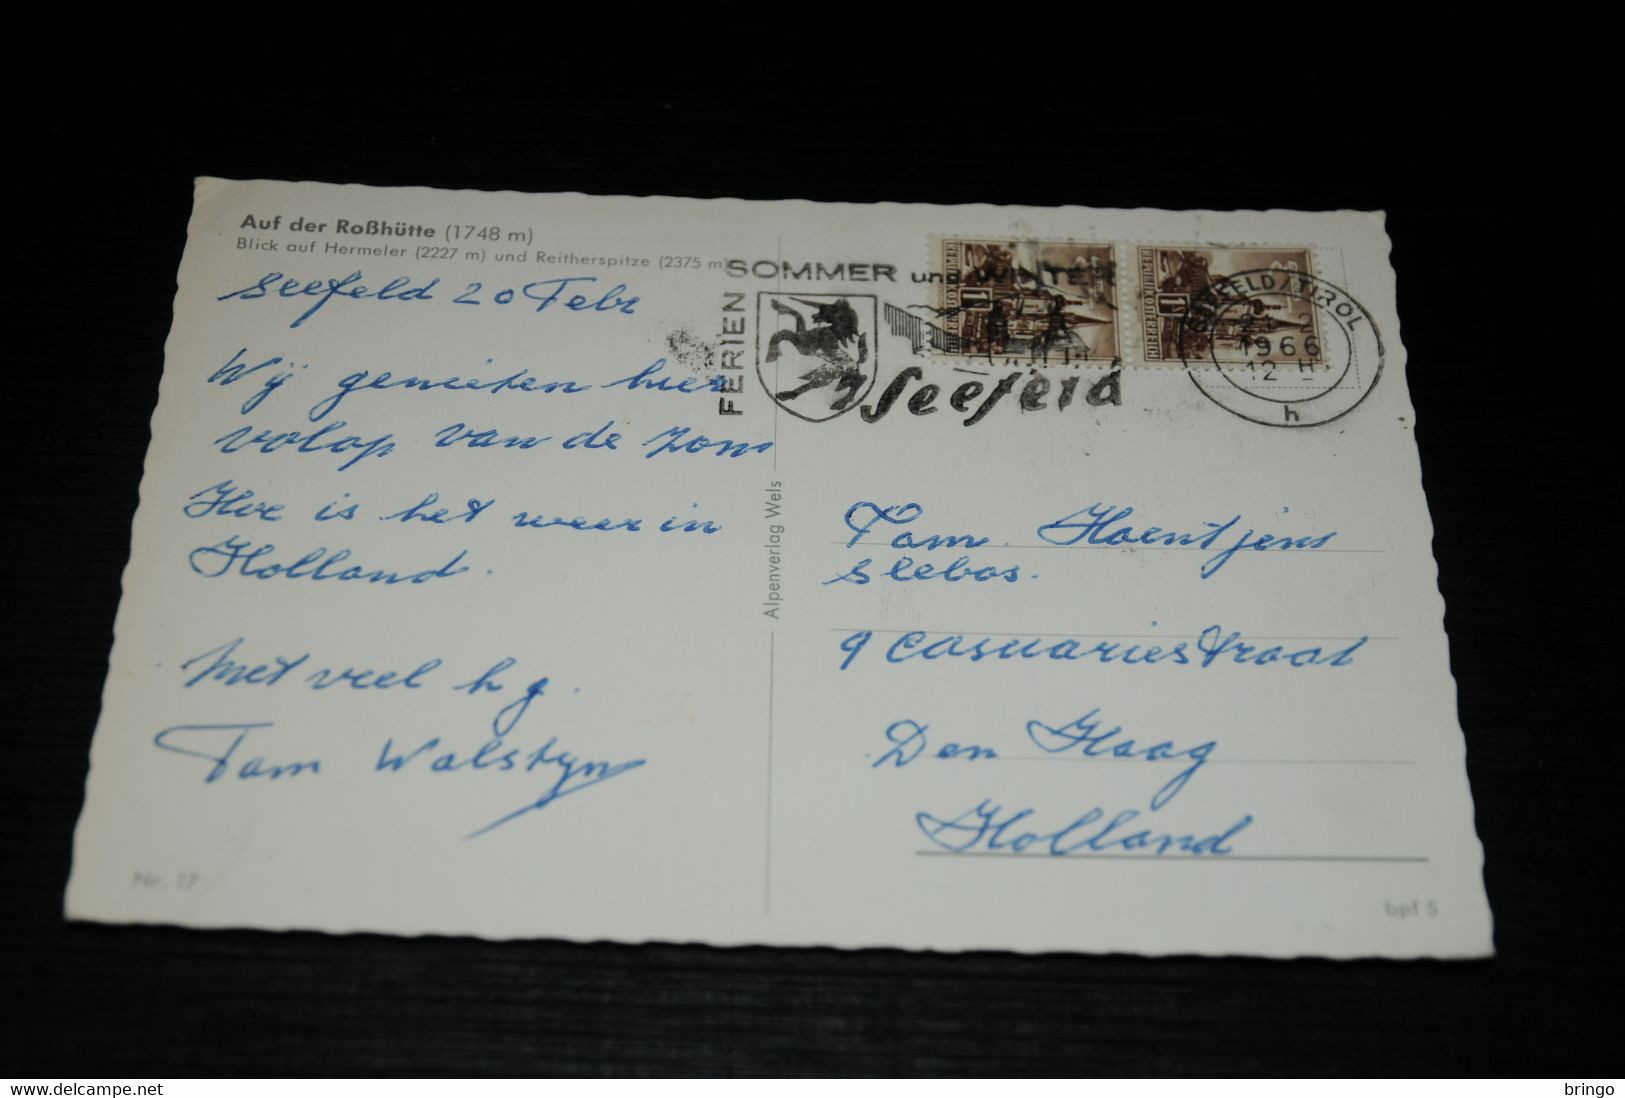 Auf der Roßhütte (1748 m)
Blick auf Hermeler (2227 m) und Reitherspitze (2375 m)
Seefeld 20 Febr
Wij genieten hier
volop van de zon
Hoe is het weer in
Holland.
Met veel h g.
Fam Walstyn
Nr. 17
Alpenverlag Wels
FERIEN
SOMMER und WINTER
Seefeld
REPUBLIK ÖSTERREICH
REPUBLIK ÖSTERREICH
SEEFELD/TIROL
1966
12
h
Fam. Hoentjens
Slebos.
9 Casuariestraat
Den Haag
Holland
bpf 5
bringo